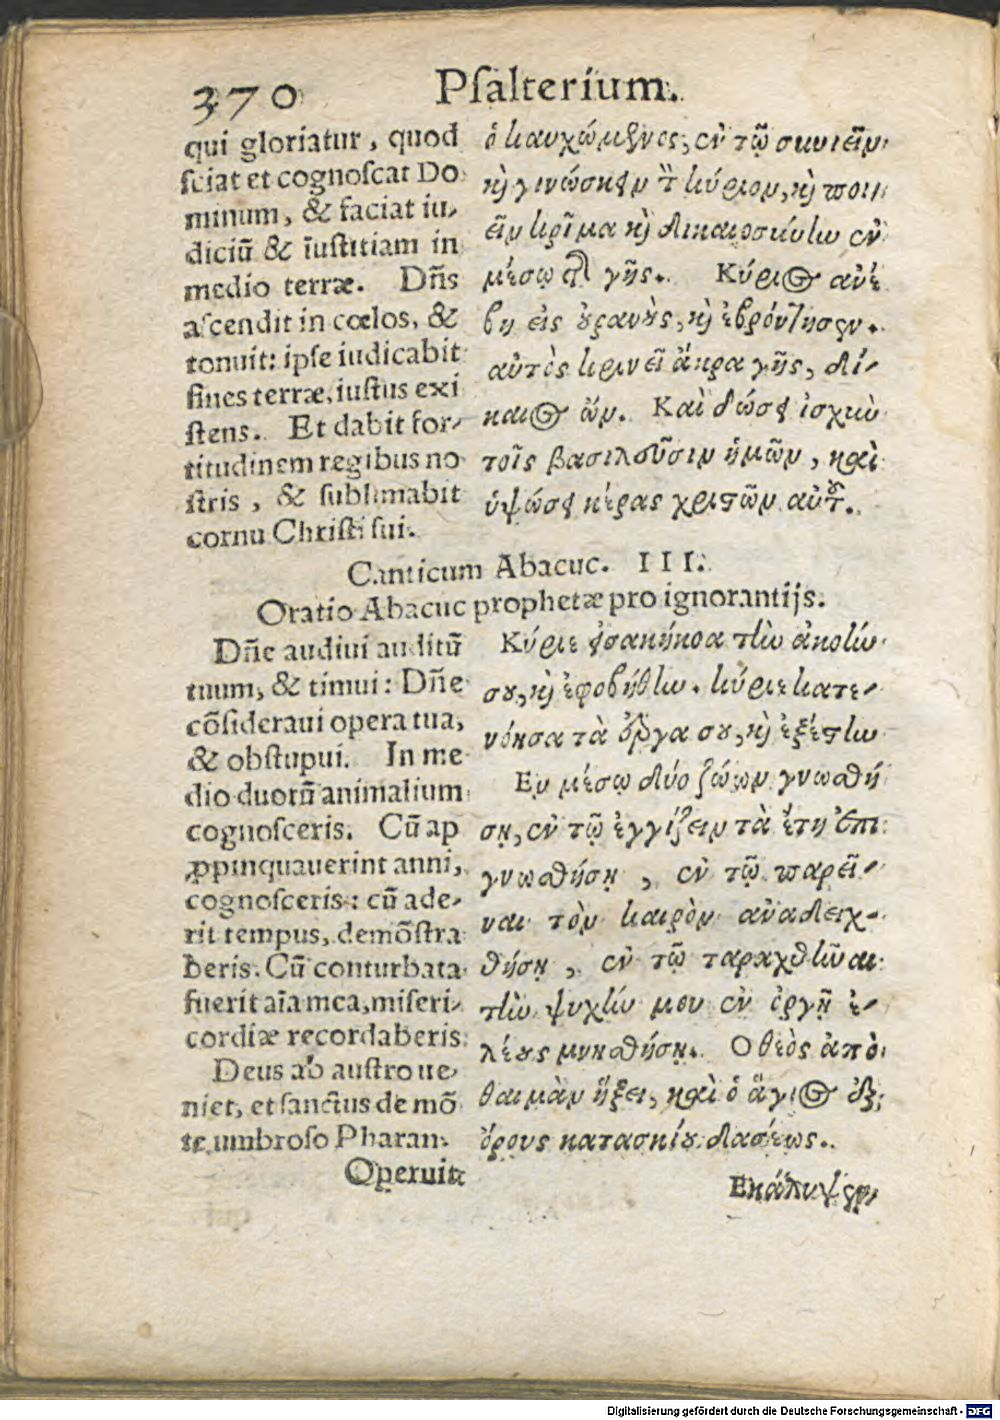 370 Pſalterium.
qui gloriatur, quod
ſciat et cognoſcat Do
minum, & faciat iu-
diciū & iuſtitiam in
medio terræ. Dñs
aſcendit in cœlos, &
tonuit: ipſe iudicabit
fines terræ, iuſtus exi
ſtens. Et dabit for-
titudinem regibus no
ſtris, & ſublimabit
cornu Chriſti ſui.
ὁ καυχώμενος, ἐν τῷ συνιεῖν
καὶ γινώσκειν τ̀ κύριον, καὶ ποι
εῖν κρῖμα καὶ δικαιοσύνην ἐν
μέσῳ τῆς γῆς. Κύριος ἀνέ
βη εἰς οὐρανοὺς, καὶ ἐβρόντησεν.
αὐτὸς κρινεῖ ἄκρα γῆς, δί-
καιος ὤν. Καὶ δώσει ἰσχὺ
τοῖς βασιλεῦσιν ἡμῶν, καὶ
ὑψώσει κέρας χριστῶν αὐτοῦ.
Canticum Abacuc. III.
Oratio Abacuc prophetæ pro ignorantijs.
Dñe audiui auditū
tuum, & timui: Dñe
cōſideraui opera tua,
& obſtupui. In me
dio duorū animalium
cognoſceris. Cū ap
ꝓpinquauerint anni,
cognoſceris: cū ade-
rit tempus, demōſtra
beris. Cū conturbata
fuerit aīa mea, miſeri-
cordiæ recordaberis.
Deus ab auſtro ue-
niet, et ſanctus de mō
te umbroſo Pharan.
Operuit
Κύριε εἰσακήκοα τὴν ἀκοήν
σου, καὶ ἐφοβήθην. κύριε κατε-
νόησα τὰ ἔργα σου, καὶ ἐξέστην
Εν μέσῳ δύο ζώων γνωσθή
σῃ, ἐν τῷ ἐγγίζειν τὰ ἔτη ἐπι
γνωσθήσῃ, ἐν τῷ παρεῖ-
ναι τὸν καιρὸν ἀναδειχ-
θήσῃ, ἐν τῷ ταραχθῆναι
τὴν ψυχήν μου ἐν ὀργῇ ἐ-
λέους μνησθήσῃ. Ο θεὸς ἀπὸ
θαιμὰν ἥξει, καὶ ὁ ἅγιος ἐξ
ὄρους κατασκίου δασέως.
Εκάλυψεν
Digitalisierung gefördert durch die Deutsche Forschungsgemeinschaft - DFG